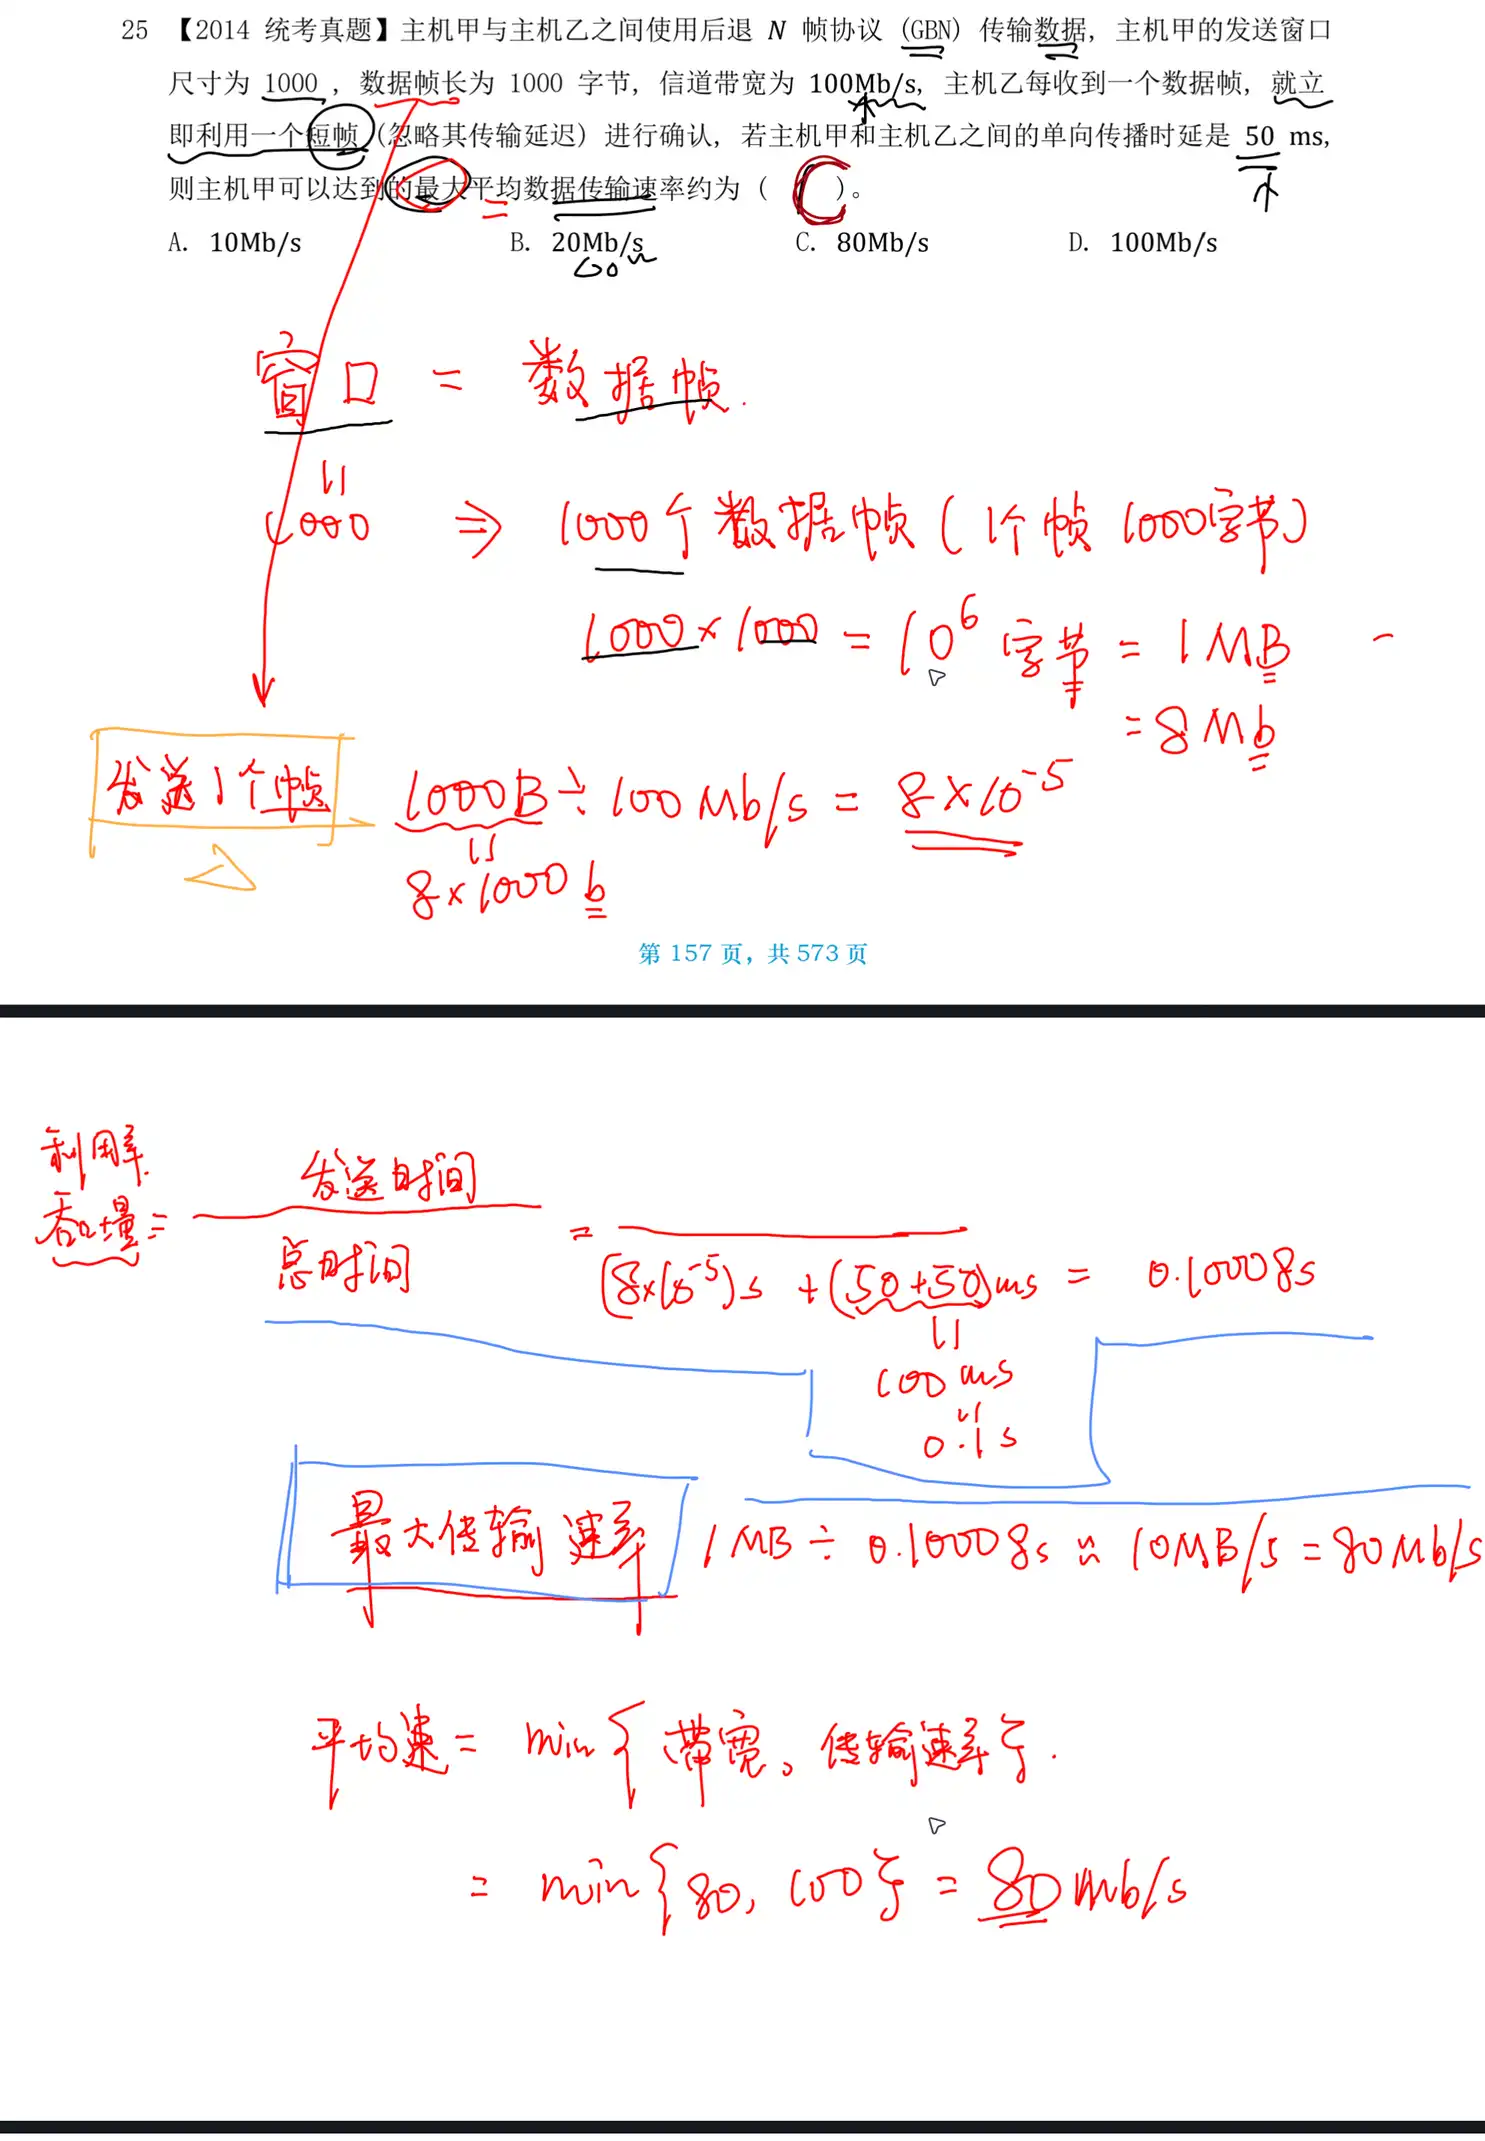 25 【2014 统考真题】主机甲与主机乙之间使用后退 N 帧协议 (GBN) 传输数据, 主机甲的发送窗口
尺寸为 1000 , 数据帧长为 1000 字节, 信道带宽为 100Mb/s, 主机乙每收到一个数据帧, 就立
即利用一个短帧 (忽略其传输延迟) 进行确认, 若主机甲和主机乙之间的单向传播时延是 50 ms,
则主机甲可以达到的最大平均数据传输速率约为 ( C )。
A. 10Mb/s B. 20Mb/s C. 80Mb/s D. 100Mb/s
窗口 = 数据帧.
1000 ⇒ 1000个数据帧 (1个帧 1000字节)
1000 × 1000 = 10^6 字节 = 1MB
= 8Mb
发送1个帧 1000B ÷ 100Mb/s = 8×10^-5
8×1000b
第 157 页, 共 573 页
利用率.
吞吐量 = 发送时间
总时间
= (8×10^-5)s + (50+50)ms = 0.10008s
100ms
0.1s
最大传输速率 1MB ÷ 0.10008s ≈ 10MB/s = 80Mb/s
平均速 = min{带宽、传输速率}.
= min{80, 100} = 80mb/s